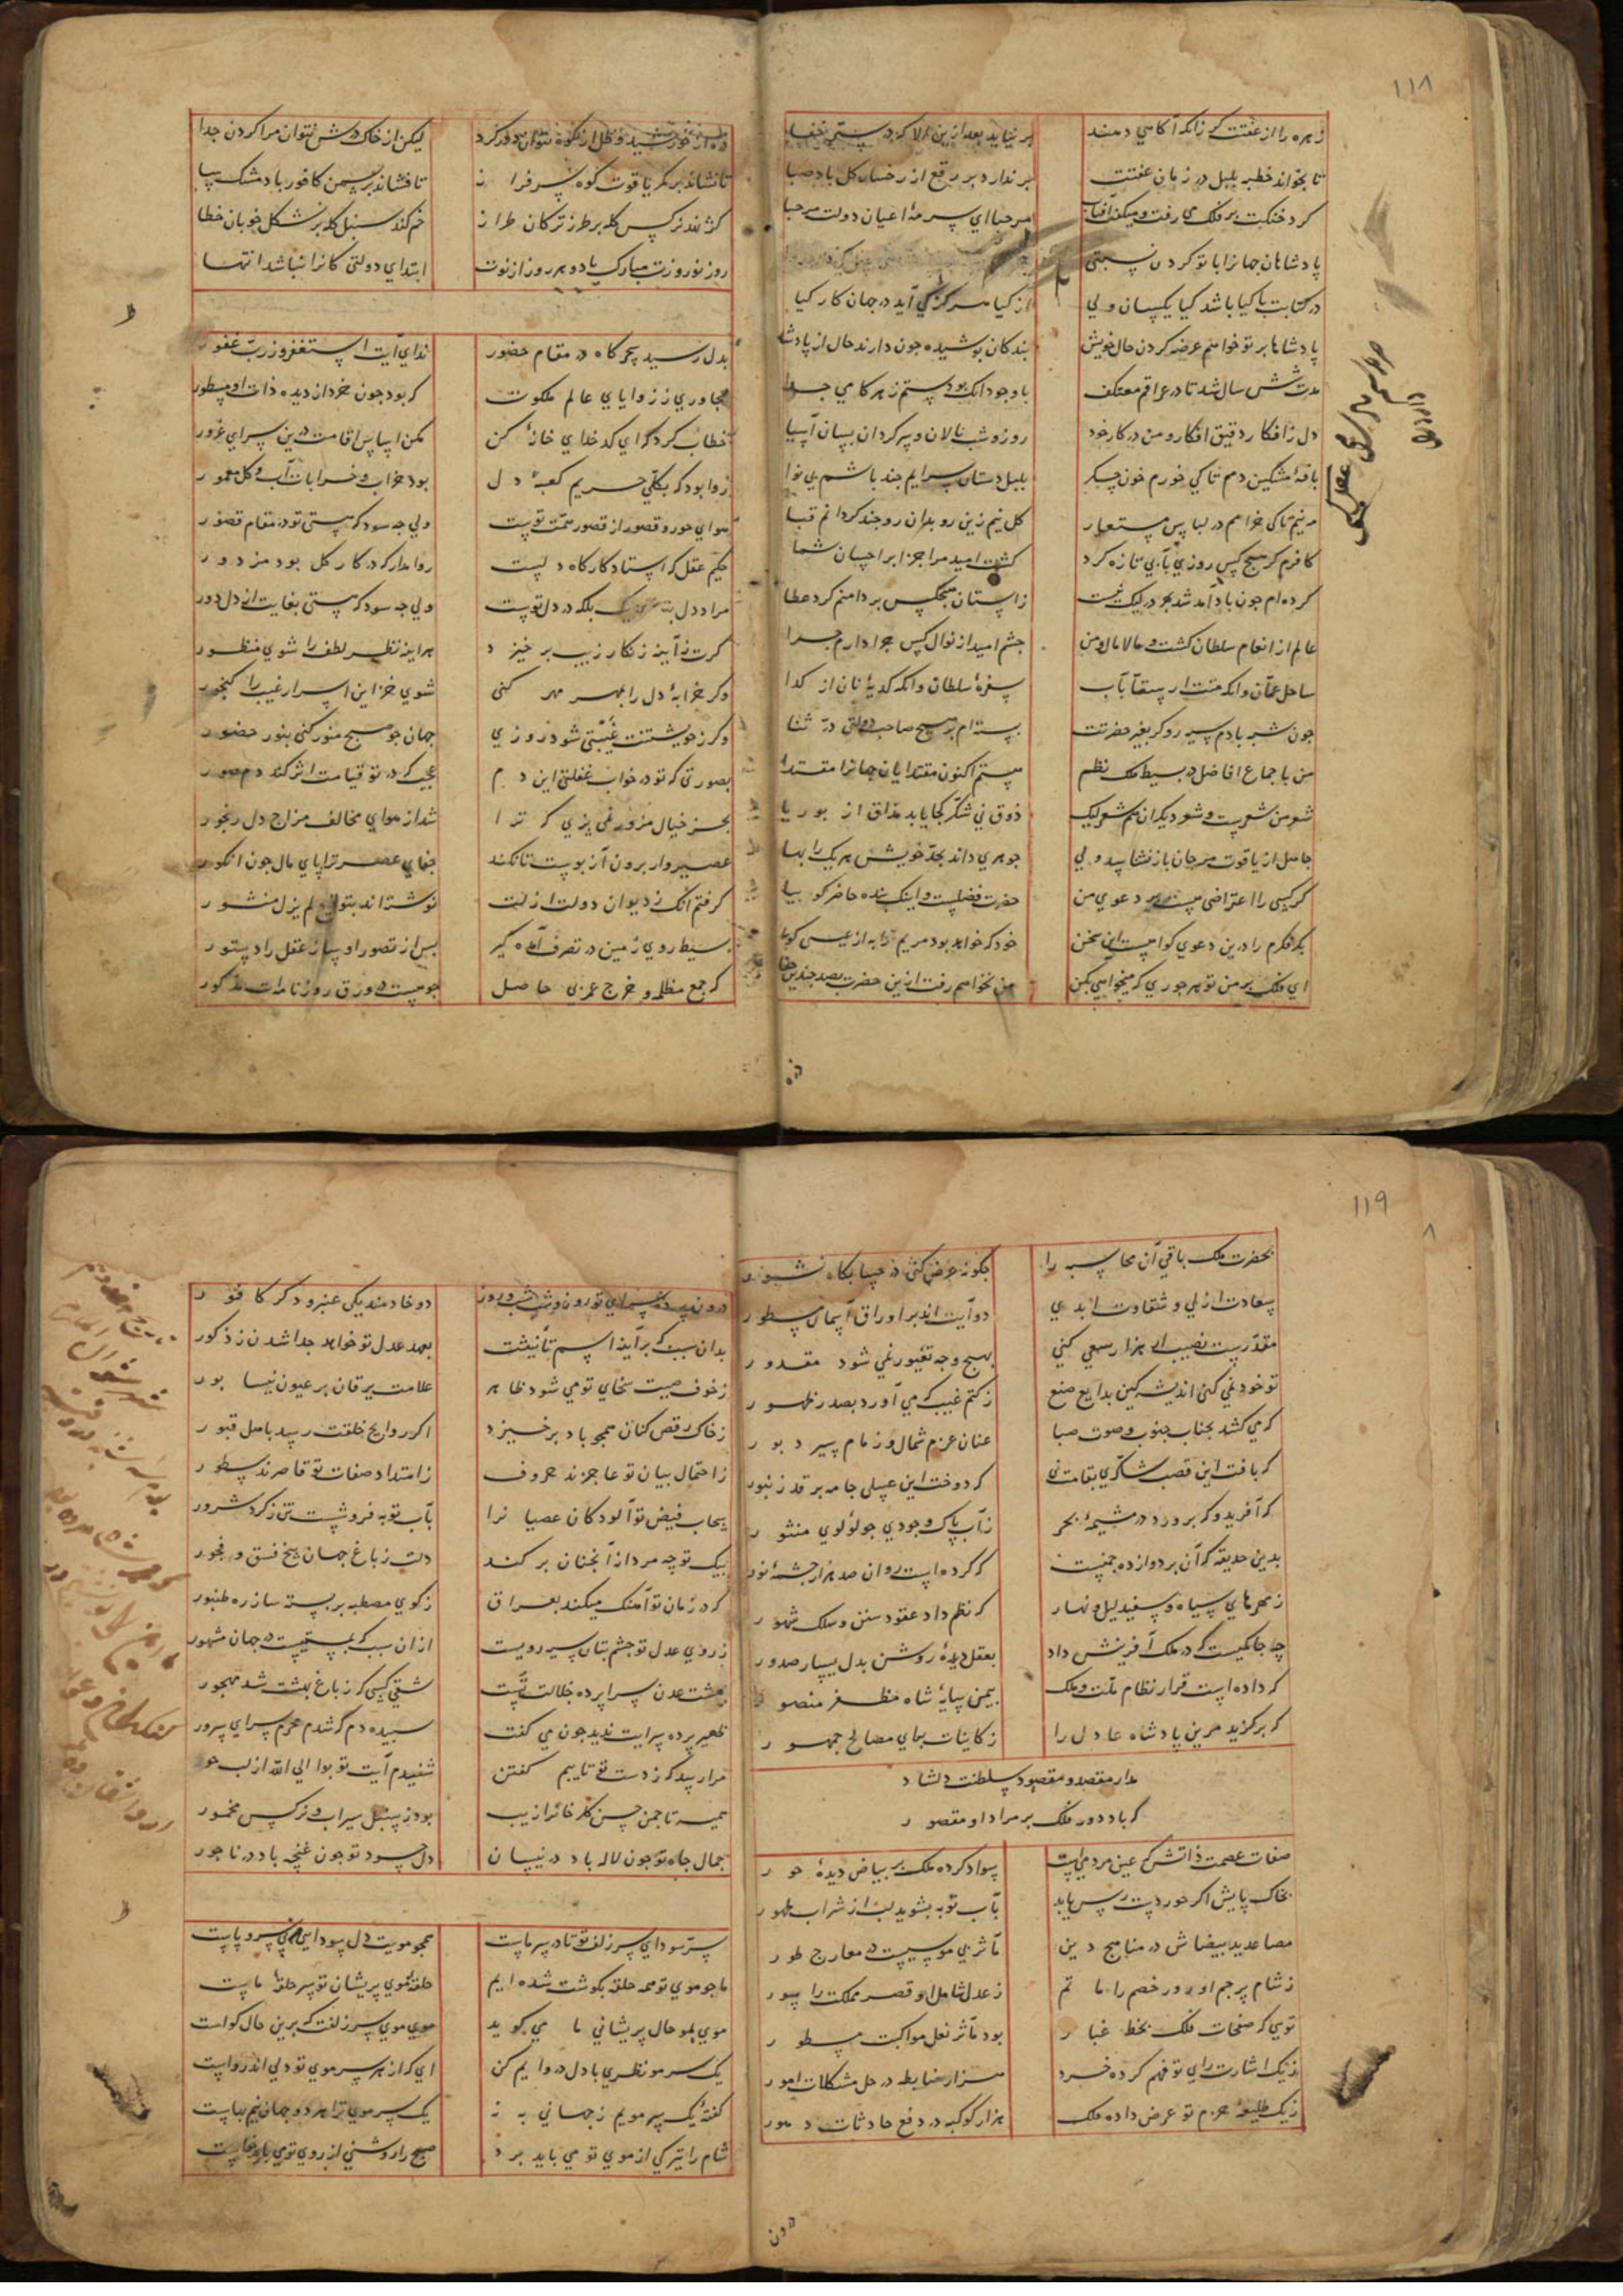 ۱۱۸
زهره را از عفتت گر زانکه آگاهی دهند
بر نیاید بعد ازین الا که در ستر خفا
تا بخواند خطبه بلبل در زمان عفتت
بر ندارد برقع از رخسار گل باد صبا
گرد خنگت بر فلک می رفت و میگفت آفتاب
مرحبا ای سرمهٔ اعیان دولت مرحبا
پادشاهان جهانرا با تو کردن نسبتی
در کتابت با کیا باشد کیا یکسان ولی
از کیا هرگز کی آید در جهان کار کیا
پادشاها بر تو خواهم عرضه کردن حال خویش
بندکان پوشیده چون دارند حال از پادشا
مدت شش سال شد تا در عراقم معتکف
با وجود انک بودستم ز هر کامی جدا
دل ز افکار دقیق افکار و من در کار خود
روز و شب نالان و سر گردان بسان آسیا
نافهٔ مشکین دم تا کی خورم خون جگر
بلبل دستان سرایم چند باشم بی نوا
من نیم تا کی خرامم در لباس مستعار
کل نیم زین رو بدان رو چند گردانم قبا
کافرم گر هیچ کس روزی بآبی تازه کرد
کشت امید مرا جز ابر احسان شما
کرده ام چون باد آمد شد بهر در لیک نیست
زاستان هیچکس بر دامنم گرد عطا
عالم از انعام سلطان کشت مالامال و من
چشم امید از نوال کس چرا دارم چرا
ساحل عمان وانکه منت از سقا بآب
سفرهٔ سلطان وانکه کدیهٔ نان از کدا
چون شیر بادم سیه رو کر بغیر حضرتت
بسته ام بر هیچ صاحب دولتی در ثنا
من باجماع افاضل در بسیط ملک نظم
هستم اکنون مقتدایان جهانرا مقتدا
شعر من شعرست و شعر دیکران هم شعر لیک
ذوق نی شکر کجا یابد مذاق از بوریا
حاصل از یاقوت مرجان باز نشناسد ولی
جوهری داند بحد خویش هر یک را بها
کر کسی را اعتراضی هست بر دعوی من
حضرت فضلست و اینک بنده حاضر کو بیا
بکر فکرم را درین دعوی گواهست این سخن
خود که خواهد بود مریم را به از عیسی گوا
ای فلک بر من تو هر جوری که میخواهی بکن
من نخواهم رفت ازین حضرت بصد چندین جفا
ذره از خورشید و ظل از کوه نتوان دور کرد
لیکن از خاک درش نتوان مرا کردن جدا
تا نشاند بر کمر یاقوت کوه سرفراز
تا فشاند بر سمن کافور باد مشک سا
کژ نهد نرگس کله بر طرز ترکان طراز
خم کند سنبل کله بر شکل خوبان خطا
روز نوروزت مبارک باد و هر روز از نوت
ابتدای دولتی کانرا نباشد انتها
بدل رسید سحرگاه در مقام حضور
ندای آیت استغفروا رب غفور
مجاوری ز زوایای عالم ملکوت
که بود چون خرد از دیده ذات او مستور
خطاب کرد که ای کدخدای خانهٔ کن
مکن اساس اقامت درین سرای غرور
روا بود که بکلی حریم کعبهٔ دل
بود خراب و خرابات آب و کل معمور
هوای حور و قصور از قصور همت تست
ولی چه سود که هستی تو در مقام قصور
حکیم عقل که استاد کارکاه دلست
روا مدار که در کار کل بود مزدور
ولی چه سود که هستی بغایت از دل دور
گرت ز آینه زنکار زیب برخیزد
هر اینه نظر لطف را شوی منظور
وکر خرابهٔ دل را بمهر مهر کنی
شوی خزاین اسرار غیب را کنجور
وکر ز خویشتنت غیبتی شود روزی
جهان چو صبح منور کنی بنور حضور
بصورتی که تو در خواب غفلتی این دم
عجب که در تو قیامت اثر کند دم صور
بجز خیال مزور نمی پزی که ترا
شد از هوای مخالف مزاج دل رنجور
عصیروار برون آر پوست تا نکند
جفای عصر ترا پای مال چون انکور
گرفتم انک ز دیوان دولت ازلت
نوشته اند بتوقیع لم یزل منشور
بسیط روی زمین در تصرف آمده گیر
پس از تصور او ساز عقل را دستور
که جمع مظلمه و خرج عمر بی حاصل
چو هست در ورق روزنامه ات مذکور
ذره
۱۱۹
بحضرت ملک باقی آن محاسبه را
چگونه عرض کنی در حسابگاه نشور
سعادت ازلی و شقاوت ابدی
دو آیت اند بر اوراق آسمان مسطور
مقدرست نصیب ار هزار سعی کنی
بهیچ وجه تغیر نمی شود مقدور
تو خود نمی کنی اندیشه کین بدایع صنع
ز کتم غیب که می آورد بصدر ظهور
که می کشد بجناب جنوب و صوب صبا
عنان عزم شمال و زمام سیر دبور
که بافت این قصب شکری بقامت نی
که دوخت این عسلی جامه بر قد زنبور
که آفرید و که پرورد در مشیمهٔ بحر
ز آب پاک وجودی چو لؤلوی منثور
بدین حدیقه که آن بر دوازده چمنست
که کرده است روان صد هزار چشمهٔ نور
ز مهرهای سیاه و سفید لیل و نهار
که نظم داد عقود سنین و سلک شهور
چه حاکمیست که در ملک آفرینش داد
بعقل دیدهٔ روشن بدل یسار صدور
که داده است قرار نظام ملت و ملک
بیمن سایهٔ شاه مظفر منصور
که برگزید مرین پادشاه عادل را
ز کاینات برای مصالح جمهور
مدار مقصد و مقصود سلطنت دلشاد
که باد دور فلک بر مراد او مقصور
صفات عصمت ذاتش که عین مردمیست
سواد کرده ملک بر بیاض دیدهٔ حور
بخاک پایش اگر حور دست رس یابد
بآب توبه بشوید لب از شراب طهور
مصاعد ید بیضاش در مناهج دین
مآثر ید موسیست در معارج طور
ز شام پرچم او روز خصم را ماتم
ز عدل شامل او قصر مملکت را سور
تویی که صفحات فلک بخط غبار
بود مآثر نعل مواکبت مسطور
ز یک اشارت رای تو فهم کرده خرد
هزار ضابطه در حل مشکلات امور
ز یک طلیعهٔ حزم تو عرض داده ملک
هزار کوکبه در دفع حادثات دهور
درون پرده سرای تو روز و شب شب و روز
دو خادمند یکی عنبر و دگر کافور
بدان سبب که برآیند اسم تأنیثت
بعهد عدل تو خواهد جدا شدن ز ذکور
ز خوف صیت سخای تو می شود ظاهر
علامت یرقان بر عیون نیسابور
ز خاک رقص کنان همچو باد برخیزد
اگر روایح خلقت رسد باهل قبور
ز احتمال بیان تو عاجزند حروف
ز امتداد صفات تو قاصرند سطور
سحاب فیض تو آلودگان عصیانرا
بآب توبه فروشست تن ز گرد شرور
بیک توجه مردانه آنچنان بر کند
دلت ز باغ جهان بیخ فسق و فجور
که در زمان تو آهنگ میکند بعراق
ز کوی مصطبه بربسته ساز ره طنبور
ز روی عدل تو چشم بتان سیه رویست
ازان سبب که بمستیست در جهان مشهور
بهشت عدن سراپرده جلالت تست
شقی کسی که ز باغ بهشت شد مهجور
ظهیر پرده سرایت ندید چون می گفت
سپیده دم که شدم محرم سرای سرور
مرا رسد که ز دست تو تایبم گفتن
شنیدم آیت توبوا الی الله از لب حور
همیشه تا چمن حسن گلرخانرا زیب
بود ز سنبل سیراب و نرگس مخمور
جمال جاه تو چون لاله باد در نیسان
دل حسود تو چون غنچه باد در ناجور
سر سودای سر زلف تو تا در سر ماست
همچو مویت دل سودایی ما بی سر و پاست
ما چو موی تو همه حلقه بگوشت شده ایم
حلقهٔ موی پریشان تو سر حلقهٔ ماست
موی بمو حال پریشانی ما می گوید
موی موی سر زلفت که برین حال گواست
یک سر مو نظری با دل دروایم کن
ای که از هر سر موی تو دلی اندرواست
گفتهٔ یک سر مویم ز جهانی به نه
یک سر موی ترا هر دو جهان نیم بهاست
شام را تیرگی از موی تو می باید برد
صبح را روشنی از روی تو می باید خاست
درون